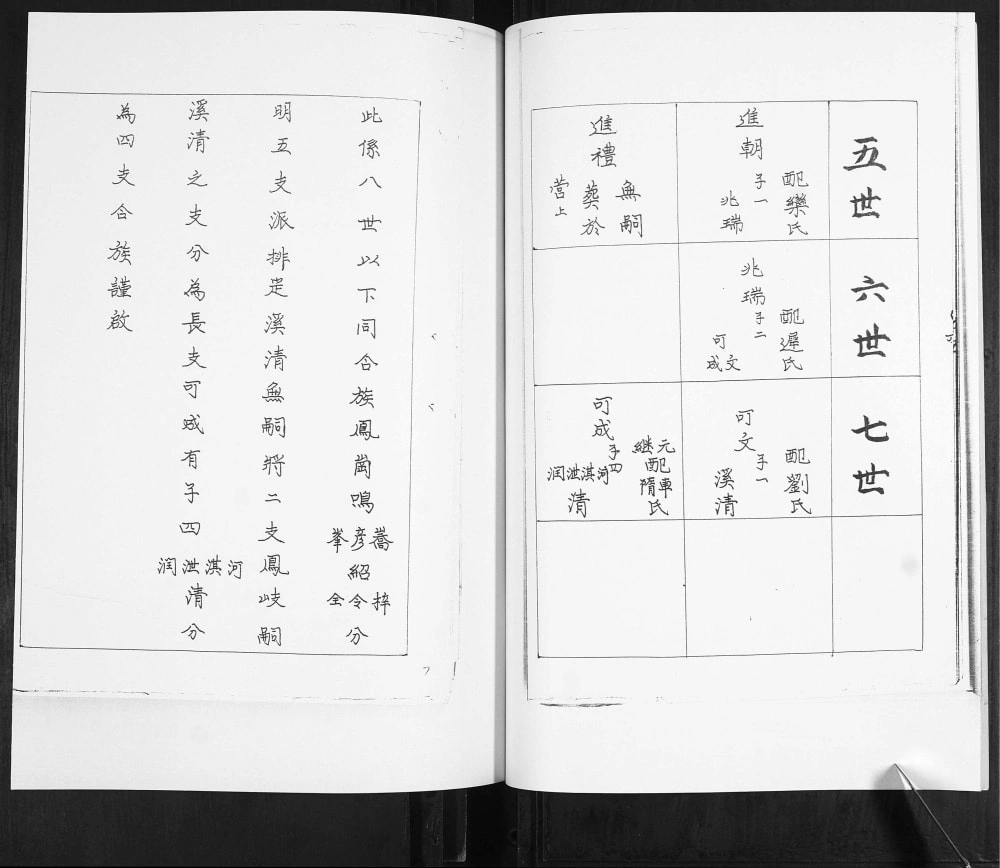 五世
進朝
配欒氏
子一
兆瑞
進禮
無嗣
葬於
營上
六世
兆瑞
配遲氏
子二
可文
成
七世
可文
配劉氏
子一
溪清
可成
元配車氏
継配隋氏
子四
河淇泄润
清
此係八世以下同合族鳳崗鳴
喬彦峯
紹
梓令全
分
明五支派排定溪清無嗣將二支鳳岐嗣
溪清之支分為長支可成有子四
河淇泄润
清分
為四支合族謹啟